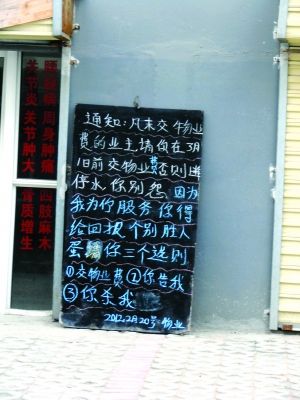 腰腿痛 周身肿痛
关节炎 关节肿大
四肢麻木
骨质增生
通知:凡未交物业
费的业主请你在3月
1日前交物业费否则
停水你别怨因为
我为你服务你得
给回报个别胜人
蛋 你三个选则
①交物业费②你告我
③你杀我
2012.2月20号 物业